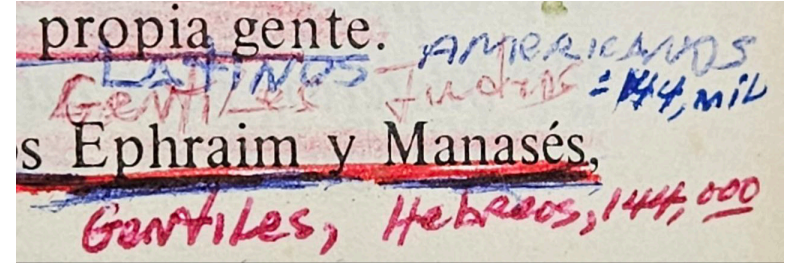 propia gente. AMERICANOS
LATINOS
Gentiles Judios = 144, mil
s Ephraim y Manasés,
Gentiles, Hebreos, 144,000